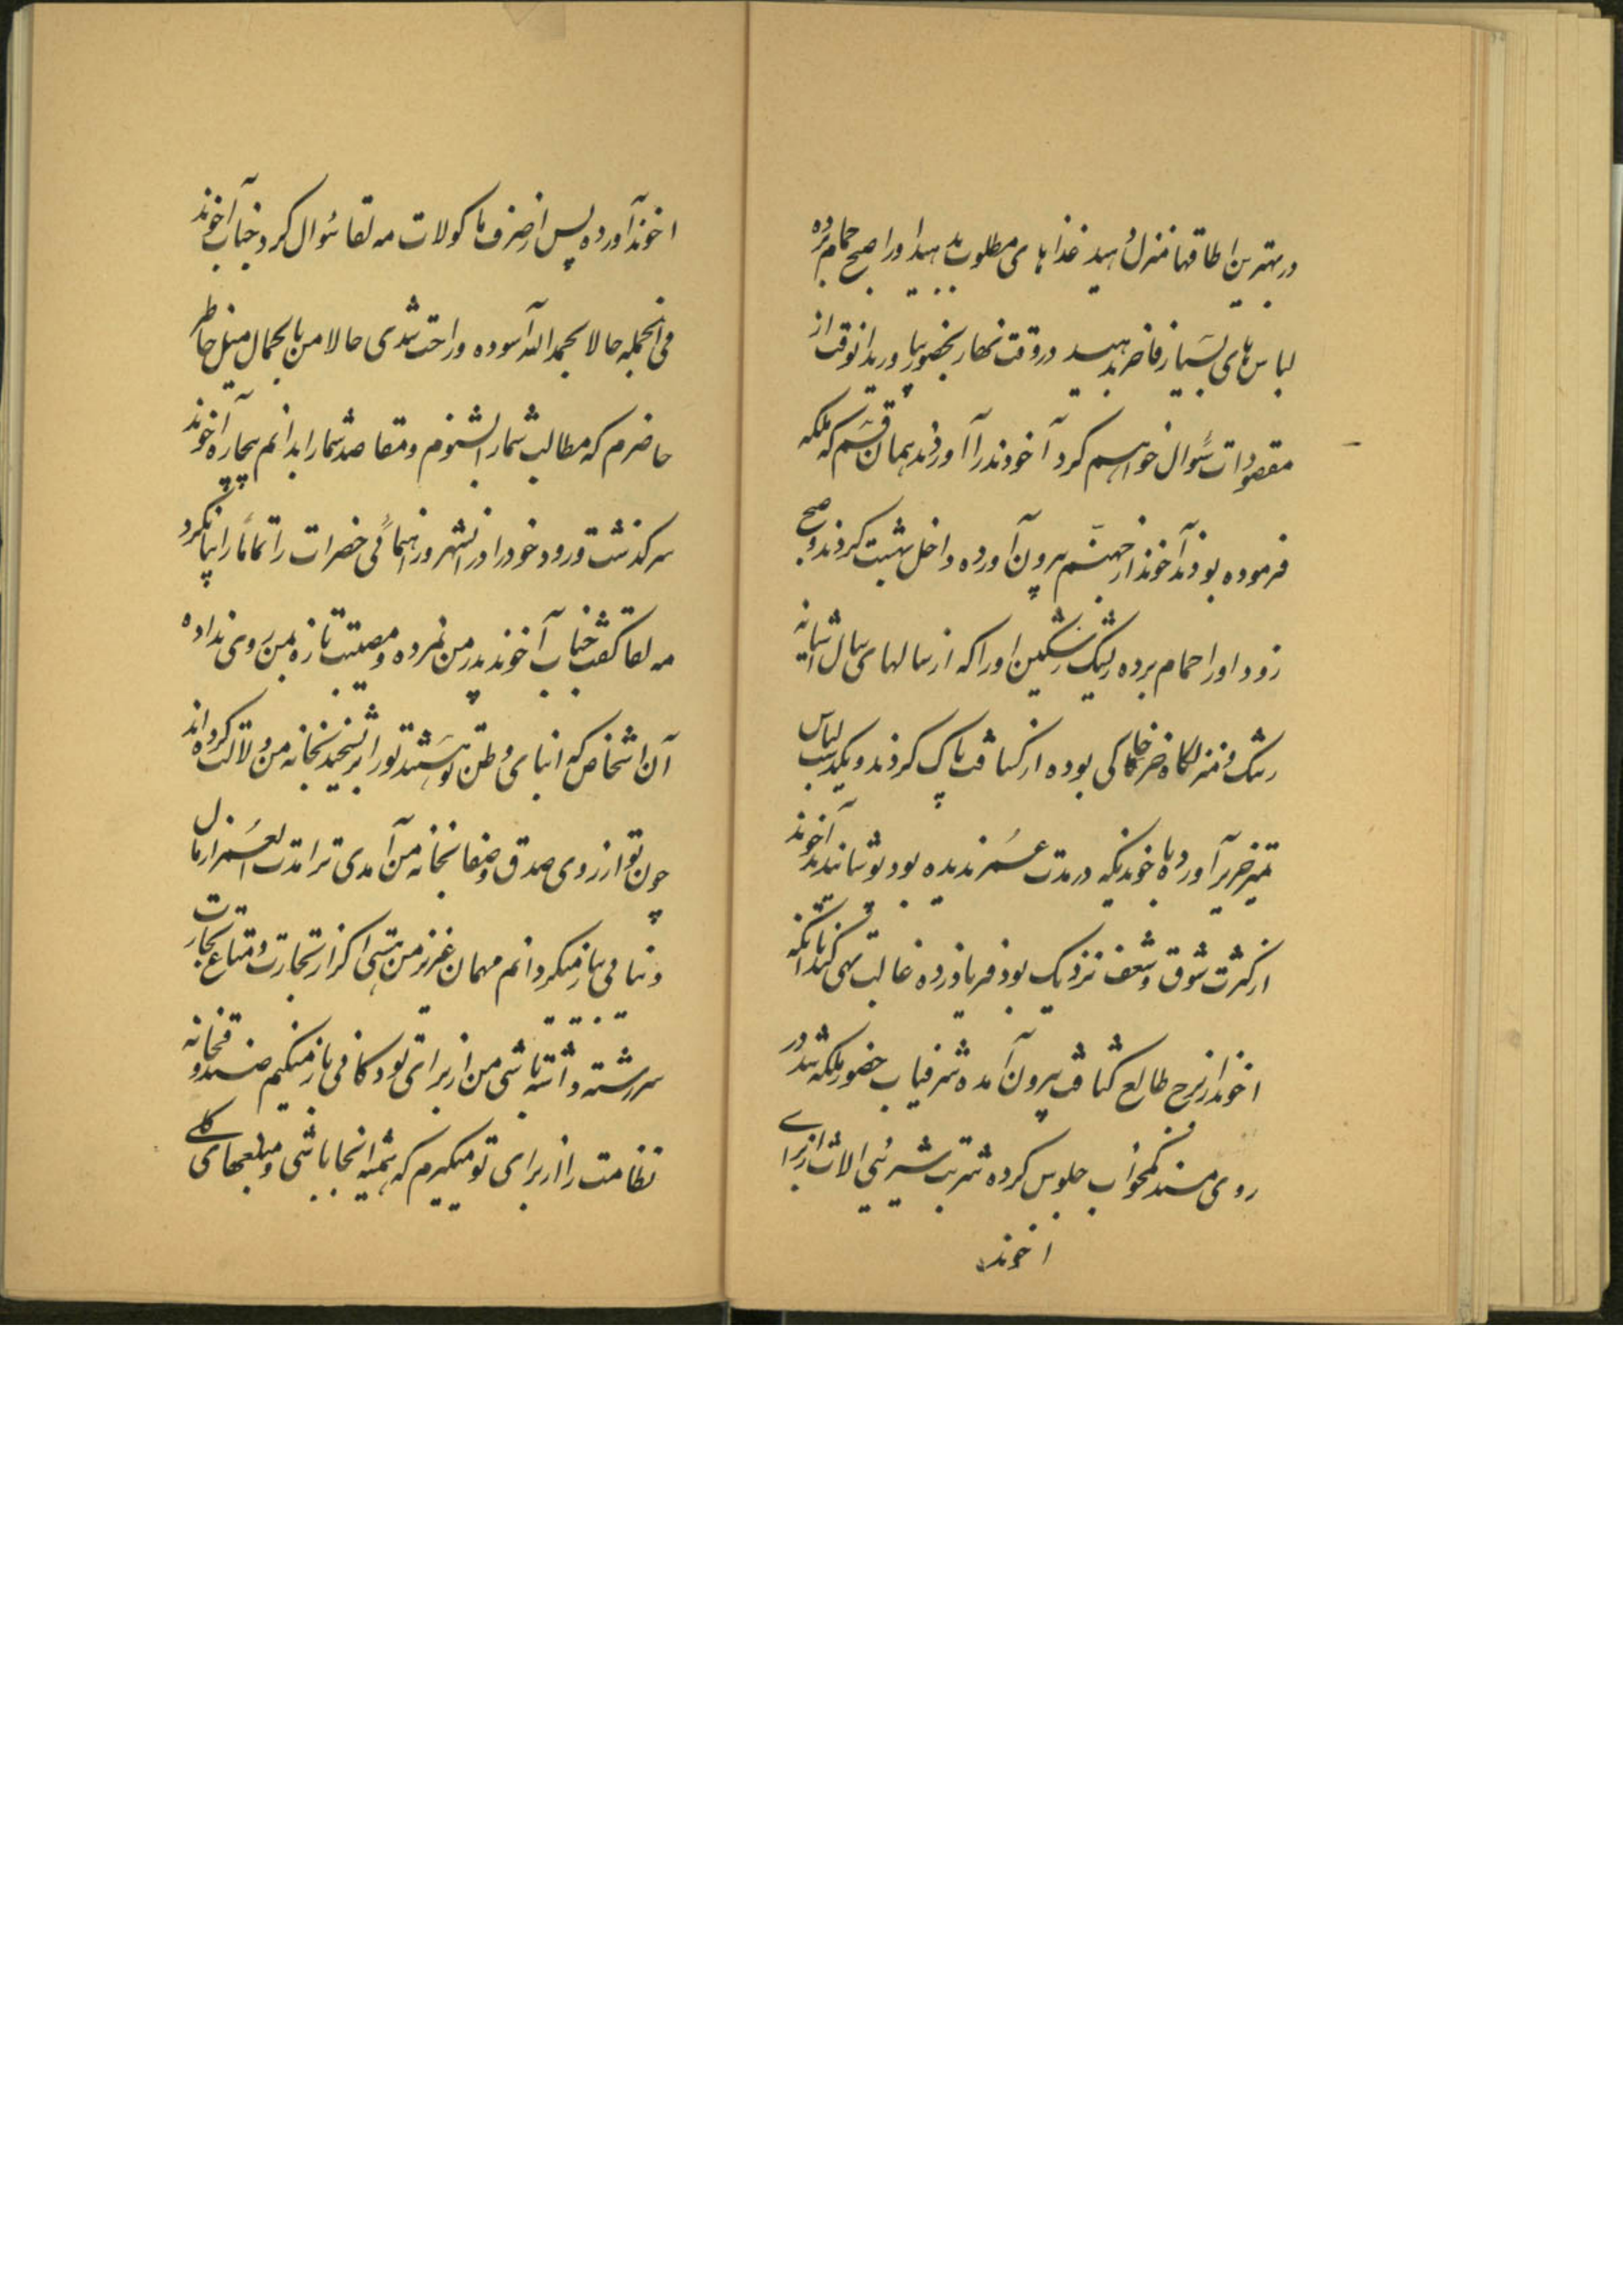 در بهترین اطاقها منزل دهید غذاهای مطلوب بدهید اورا صبح حمام برده
لباس های بسیار فاخر بدهید در وقت نهار بحضور بیاورید انوقت از
مقصودات سئوال خواهم کرد آخوندرا آوردند بهمان قسم که ملکه
فرموده بودند آخوند از جهنم بیرون آورده داخل بهشت کردند و صبح
زود اورا حمام برده ریشک رشگین اورا که از سالهای سال اشیانه
رشک و منزلگاه خر خاکی بوده از کثافت پاک کردند و یکدست لباس
تمیز حریر آورده باخوندیکه در مدت عمر ندیده بود پوشانیدند آخوند
از کثرت شوق و شعف نزدیک بود فریاد زده غالب تهی کند تا انکه
اخوند از برج طالع کثافت بیرون آمده شرفیاب حضور ملکه شد در
روی مسند کمخواب جلوس کرده شربت شیرینی الات از برای
اخوند
اخوند آورده پس از صرف ماکولات مه لقا سئوال کرد جناب آخوند
فی الجمله حالا بحمد الله آسوده و راحت شدی حالا من با کمال میل خاطر
حاضرم که مطالب شمارا بشنوم و مقاصد شمارا بدانم بیچاره آخوند
سرگذشت ورود خودرا در انشهر و رهنمائی حضرات را تماماً را بیان کرد
مه لقا گفت جناب آخوند پدر من نمرده و مصیبت تازه بمن روی نداده
آن اشخاص که ابنای وطن تو هستند تورا بریشخند بخانه من دلالت کرده اند
چون تو از روی صدق و صفا بخانه من آمدی ترا مدت العمر از مال
دنیا بی نیاز میگردانم مهمان عزیز من هستی اگر از تجارت و متاع تجارت
سررشته داشته باشی من از برای تو دکانی باز میکنم صندوقخانه
نظامت را از برای تو میگیرم که همیشه انجا باشی و مبلغهای کلی